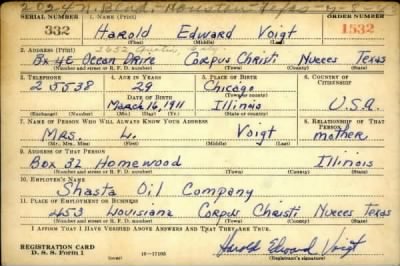 2024 N. Blvd. - Houston Texas
SERIAL NUMBER 1. NAME (Print) ORDER NUMBER
332 Harold Edward Voigt 1532
2. ADDRESS (Print)
Bx 4E Ocean Drive Corpus Christi Nueces Texas
(Number and street or R. F. D. number) (Town) (County) (State)
3. TELEPHONE 4. AGE IN YEARS 5. PLACE OF BIRTH 6. COUNTRY OF CITIZENSHIP
2 5538 29 Chicago
DATE OF BIRTH (Town or county)
March 16, 1911 Illinois U.S.A.
(Exchange) (Number) (Mo.) (Day) (Yr.) (State or country)
7. NAME OF PERSON WHO WILL ALWAYS KNOW YOUR ADDRESS 8. RELATIONSHIP OF THAT PERSON
Mrs. L. Voigt mother
(Mr., Mrs., Miss) (First) (Middle) (Last)
9. ADDRESS OF THAT PERSON
Box 32 Homewood Illinois
(Number and street or R. F. D. number) (Town) (County) (State)
10. EMPLOYER'S NAME
Shasta Oil Company
11. PLACE OF EMPLOYMENT OR BUSINESS
453 Louisiana Corpus Christi Nueces Texas
(Number and street or R. F. D. number) (Town) (County) (State)
I AFFIRM THAT I HAVE VERIFIED ABOVE ANSWERS AND THAT THEY ARE TRUE.
REGISTRATION CARD
D. S. S. Form 1 16-17105 Harold Edward Voigt
(Registrant's signature)